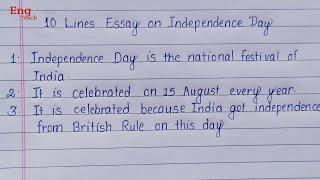 Eng
Teach
10 Lines Essay on Independence Day
1. Independence Day is the national festival of
India.
2. It is celebrated on 15 August every year.
3. It is celebrated because India got independence
from British Rule on this day